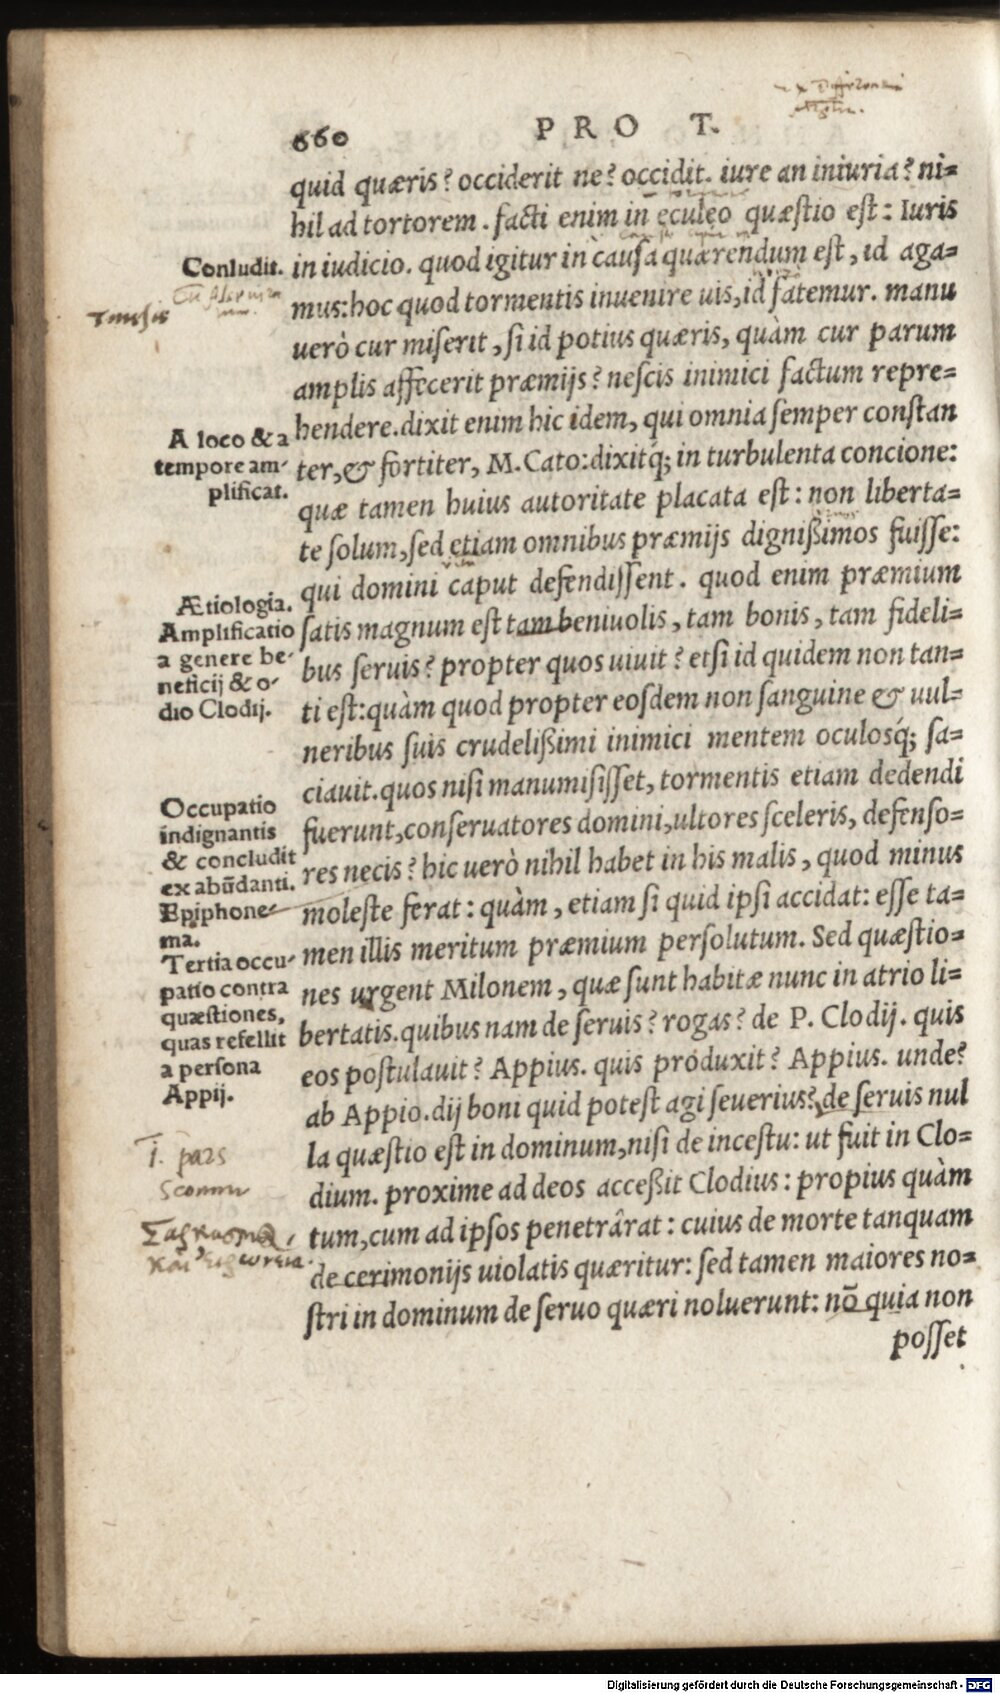 660 PRO T.
quid quæris? occiderit ne? occidit. iure an iniuria? ni=
hil ad tortorem. facti enim in eculeo quæstio est: Iuris
in iudicio. quod igitur in causa quærendum est, id aga=
mus: hoc quod tormentis inuenire uis, id fatemur. manu
uerò cur miserit, si id potius quæris, quàm cur parum
amplis affecerit præmijs? nescis inimici factum repre=
hendere. dixit enim hic idem, qui omnia semper constan
ter, & fortiter, M. Cato: dixitq; in turbulenta concione:
quæ tamen huius autoritate placata est: non liberta=
te solum, sed etiam omnibus præmijs dignißimos fuisse:
qui domini caput defendissent. quod enim præmium
satis magnum est tam beniuolis, tam bonis, tam fideli=
bus seruis? propter quos uiuit? etsi id quidem non tan=
ti est: quàm quod propter eosdem non sanguine & uul=
neribus suis crudelißimi inimici mentem oculosq́; sa=
ciauit. quos nisi manumisisset, tormentis etiam dedendi
fuerunt, conseruatores domini, ultores sceleris, defenso=
res necis? hic uerò nihil habet in his malis, quod minus
moleste ferat: quàm, etiam si quid ipsi accidat: esse ta=
men illis meritum præmium persolutum. Sed quæstio=
nes urgent Milonem, quæ sunt habitæ nunc in atrio li=
bertatis. quibus nam de seruis? rogas? de P. Clodij. quis
eos postulauit? Appius. quis produxit? Appius. unde?
ab Appio. dij boni quid potest agi seuerius? de seruis nul
la quæstio est in dominum, nisi de incestu: ut fuit in Clo=
dium. proxime ad deos acceßit Clodius: propius quàm
tum, cum ad ipsos penetrârat: cuius de morte tanquam
de cerimonijs uiolatis quæritur: sed tamen maiores no=
stri in dominum de seruo quæri noluerunt: nō quia non
posset
Conludit.
A loco & a
tempore am-
plificat.
Ætiologia.
Amplificatio
a genere be-
neficij & o-
dio Clodij.
Occupatio
indignantis
& concludit
ex abūdanti.
Epiphone-
ma.
Tertia occu-
patio contra
quæstiones,
quas refellit
a persona
Appij.
I. pars
Digitalisierung gefördert durch die Deutsche Forschungsgemeinschaft - DFG